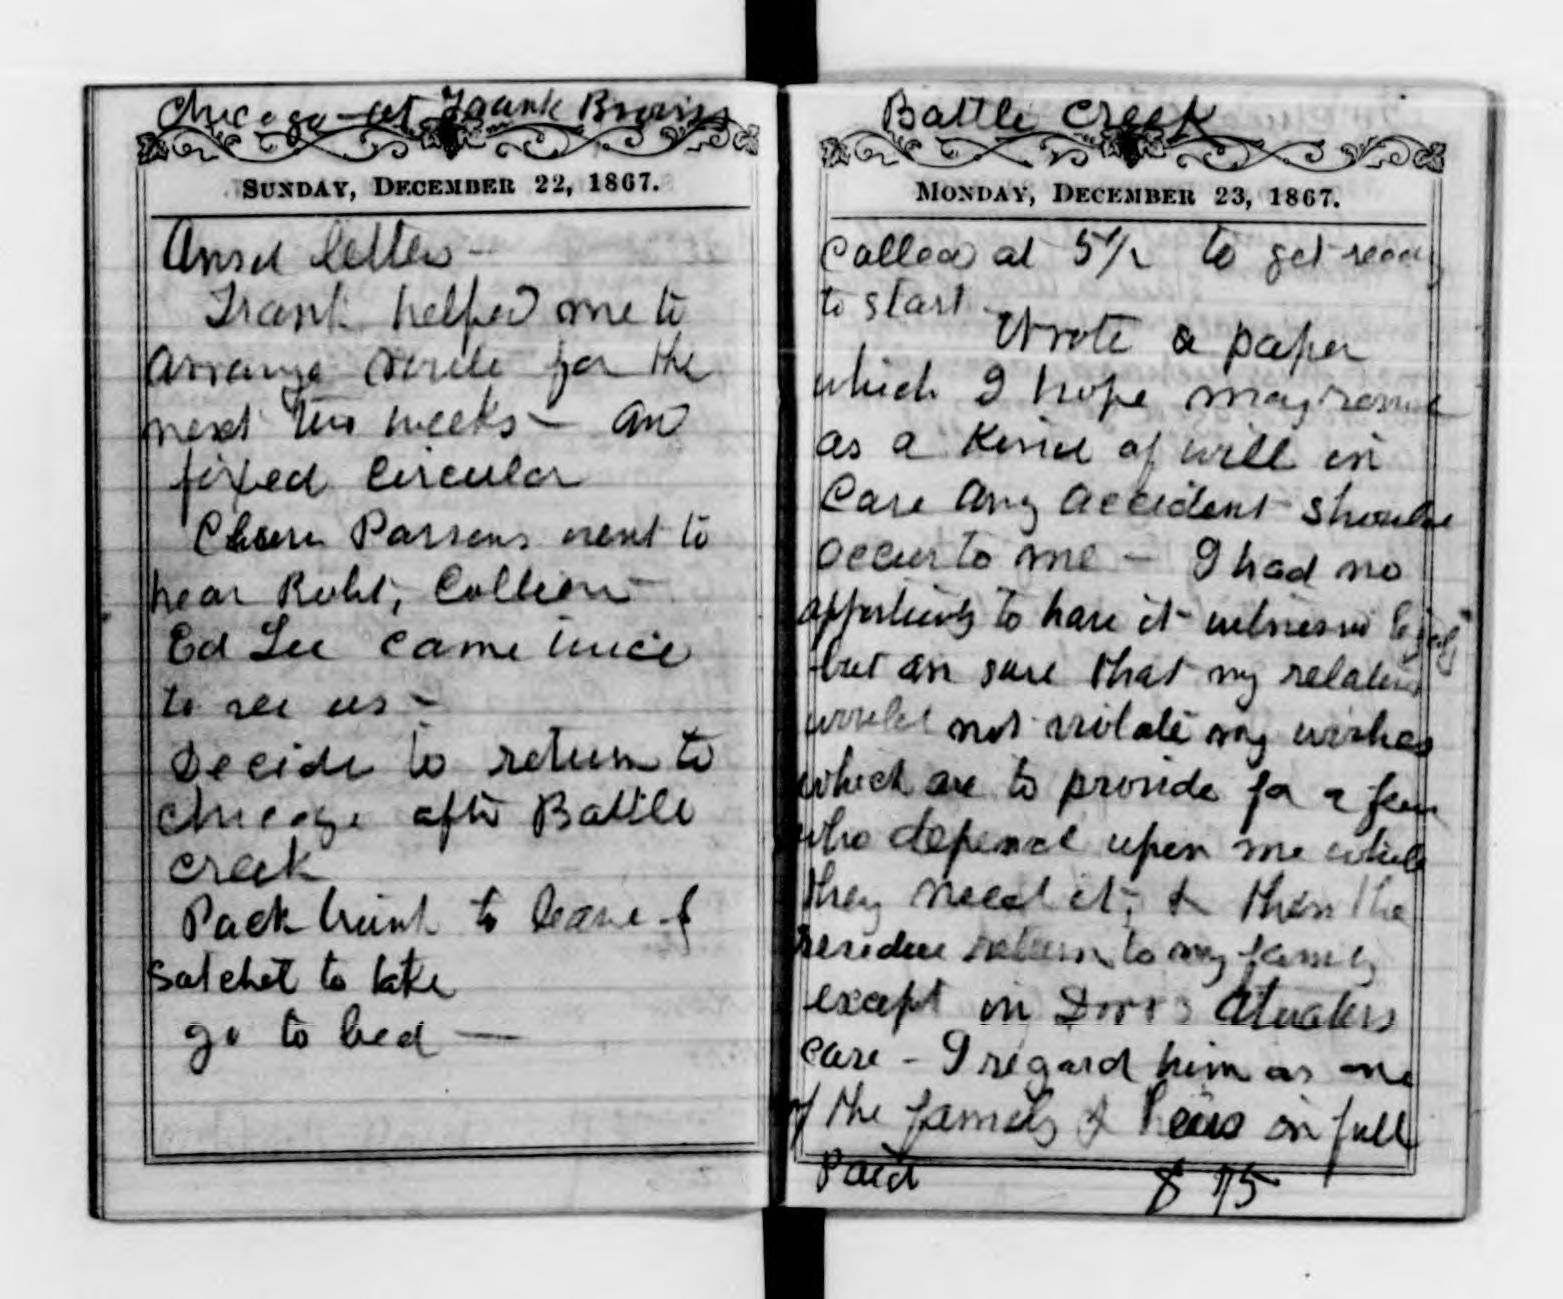 Chicago - at Frank Browns
SUNDAY, DECEMBER 22, 1867.
Ansd letters -
Frank helped me to
arrange route for the
next two weeks - and
fixed circular
Parsons went to
hear Robt, Collier -
Ed Lee came twice
to see us -
Decide to return to
Chicago after Battle
Creek
Pack trunk to leave &
Satchel to take
go to bed -
Battle Creek
MONDAY, DECEMBER 23, 1867.
Called at 5 1/2 to get ready
to start
Wrote a paper
which I hope may
as a kind of will in
Case any accident should
occur to me - I had no
opportunity to have it witnessed legally
but am sure that my relatives
would not violate my wishes
which are to provide for a few
who depend upon me while
they need it, & then the
residue return to my family
except in Dorrs Atwaters
case - I regard him as one
of the family & heirs in full
Paid $ 75